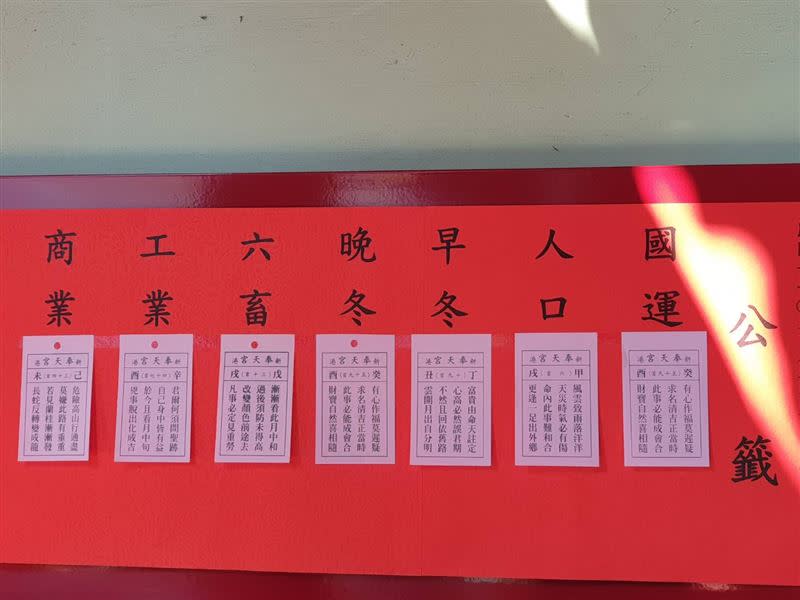 公籤
國運
新港奉天宮
癸（五十九首）酉
有心作福莫遲疑
求名清吉正當時
此事必能成會合
財寶自然喜相隨
人口
新港奉天宮
甲（六首）戌
風雲致雨落洋洋
天災時氣必有傷
命內此事難和合
更逢一足出外鄉
早冬
新港奉天宮
丁（十九首）丑
富貴由命天註定
心高必然誤君期
不然且回依舊路
雲開月出自分明
晚冬
新港奉天宮
癸（五十九首）酉
有心作福莫遲疑
求名清吉正當時
此事必能成會合
財寶自然喜相隨
六畜
新港奉天宮
戊（三十首）戌
漸漸看此月中和
過後須防未得高
改變顏色前途去
凡事必定見重勞
工業
新港奉天宮
辛（四十七首）酉
君爾何須問聖跡
自己身中皆有益
於今且看月中旬
兇事脫出化成吉
商業
新港奉天宮
己（四十三首）未
危險高山行過盡
莫嫌此路有重重
若見蘭桂漸漸發
長蛇反轉變成龍